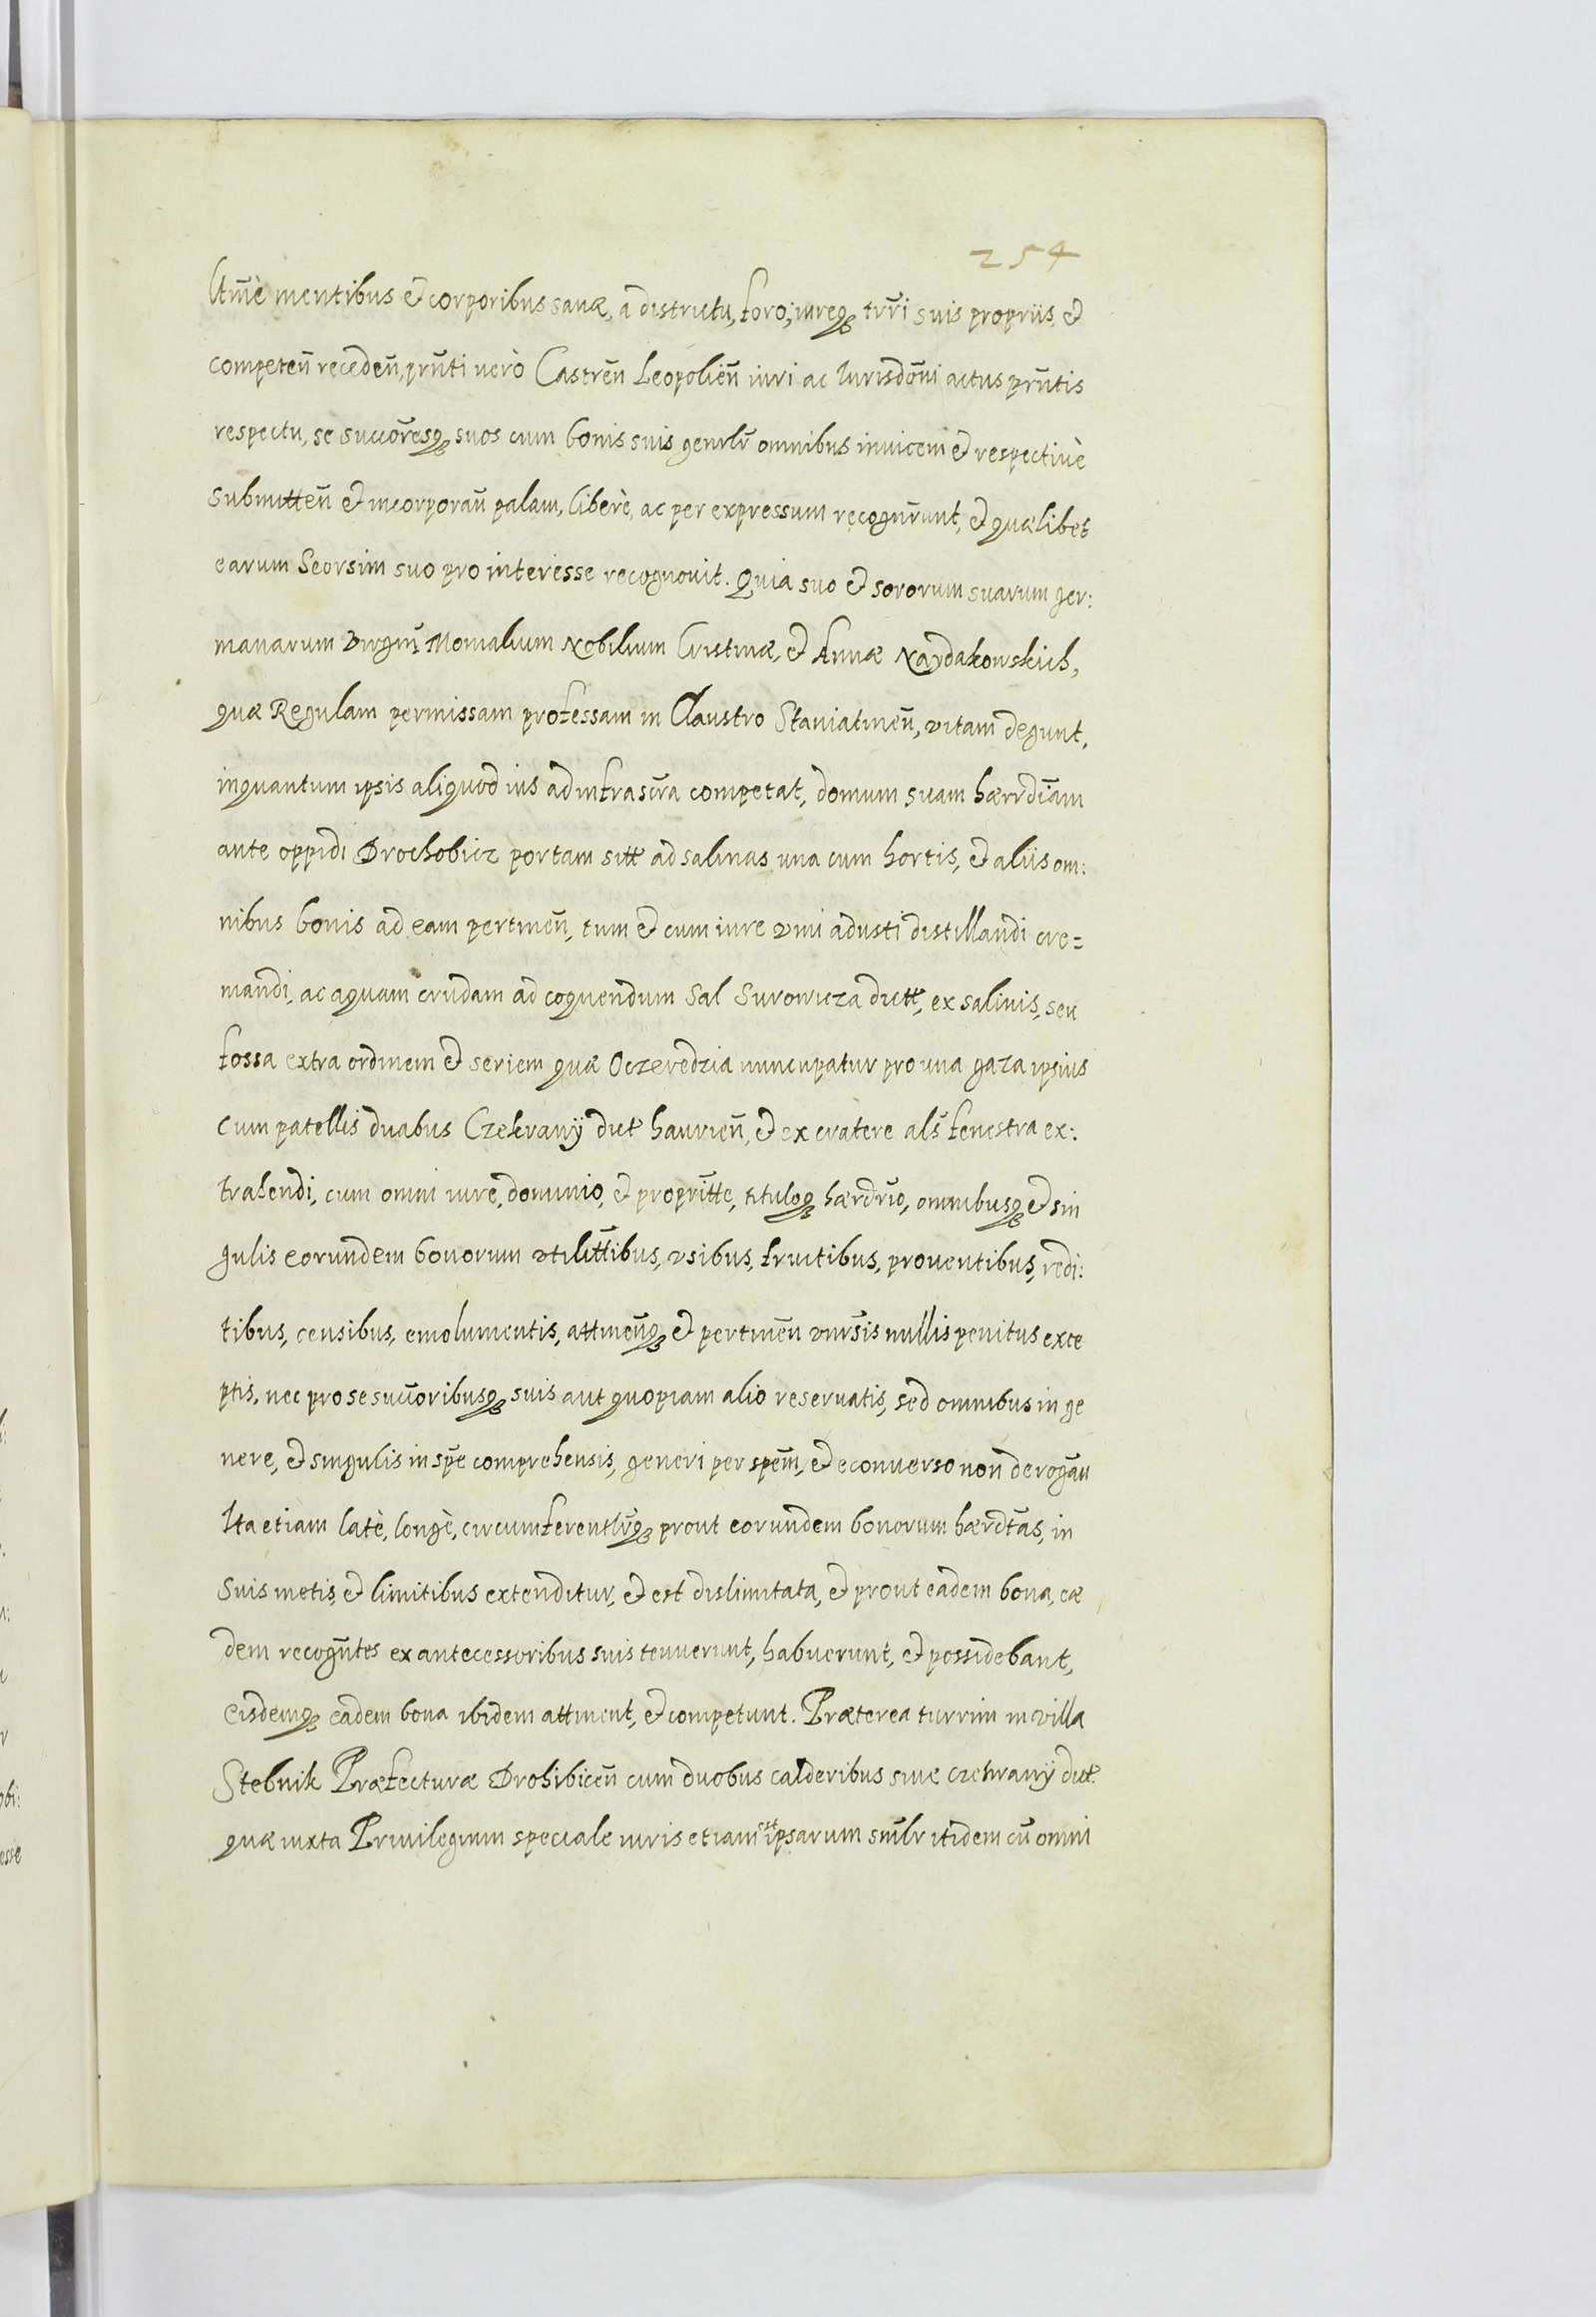 254
mentibus et corporibus sanæ, a districtu, foro, iureq̃ trri suis propriis, et
competeñ recedeñ, prñti verò Castreñ Leopolieñ iuri ac Iurisdoñi actus prñtis
respectu, se succoresq̃ suos cum bonis suis genrlr omnibus invicem et respectivè
submitteñ et incorporañ palam, liberè, ac per expressum recognrunt, et quælibet
earum Seorsim suo pro interesse recognovit. Quia suo et sororum suarum ger:
manarum Virgiñ Monialium Nobilium Cristinæ, et Annæ Naydakowskich,
quæ Regulam permissam professam in Claustro Staniatineñ, vitam degunt,
inquantum ipsis aliquod ius ad infrascra competat, domum suam hærrdiam
ante oppidi Drochobicz portam sitt ad salinas una cum hortis, et aliis om:
nibus bonis ad eam pertineñ, tum et cum iure vini adusti distillandi cre=
mandi, ac aquam crudam ad coquendum Sal Surowicza dictt, ex salinis, seu
fossa extra ordinem et seriem quæ Oczeredzia nuncupatur pro una gaza ipsius
cum patellis duabus Czekrany dict haurieñ, et ex cratere als fenestra ex:
trahendi, cum omni iure, dominio, et propritte, tituloq̃ hærdrio, omnibusq̃ et sin
gulis eorundem bonorum vtilittibus, vsibus, fructibus, proventibus, redi:
tibus, censibus, emolumentis, attineñq̃ et pertineñ vnrsis nullis penitus exce
ptis, nec pro se succoribusq̃ suis aut quopiam alio reservatis, sed omnibus in ge
nere, et singulis in spe comprehensis, generi per spem, et econverso non derogañ
Ita etiam latè, longè, circumferentlrq̃ prout eorundem bonorum hærdtas, in
Suis metis, et limitibus extenditur, et est dislimitata, et prout eadem bona, eæ
dem recogntes ex antecessoribus suis tenuerunt, habuerunt, et possidebant,
eisdemq̃ eadem bona ibidem attinent, et competunt. Præterea turrim in villa
Stebnik Præfecturæ Drohibiceñ cum duobus calderibus sive czekrany dict.
quæ iuxta Privilegium speciale iuris etiam est ipsarum smlr itidem cũ omni